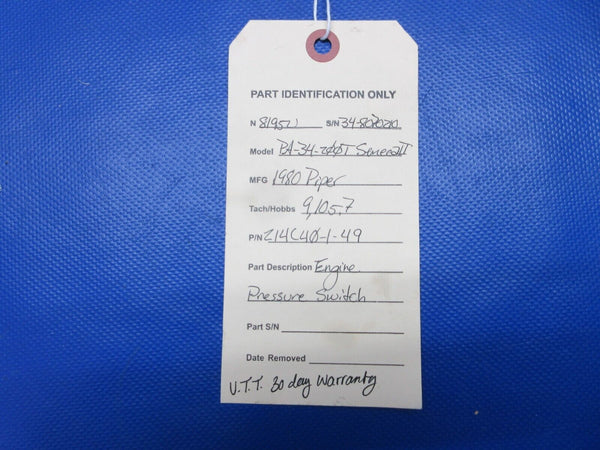 PART IDENTIFICATION ONLY
N 8195U S/N 34-8070210
Model PA-34-200T Seneca II
MFG 1980 Piper
Tach/Hobbs 9,105.7
P/N 214C40-1-49
Part Description Engine
Pressure Switch
Part S/N
Date Removed
U.T.T. 30 day warranty